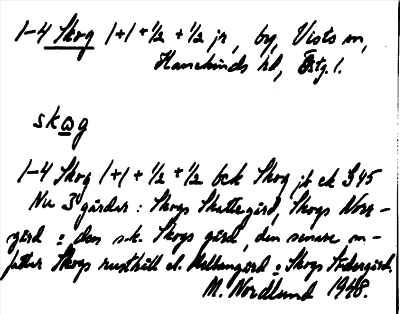 1-4 Skog 1+1+½+½ jr, by, Vists sn,
Hanekinds hd, Östg. l.
skog
1-4 Skog 1+1+½+½ bek Skog jb ek 345
Nu 3 gårdar: Skogs Skattegård, Skogs Norr-
gård = den s.k. Skogs gård, den senare
Skogs rusthåll el. Mellangård = Skogs Södergård.
M. Nordlund 1948.